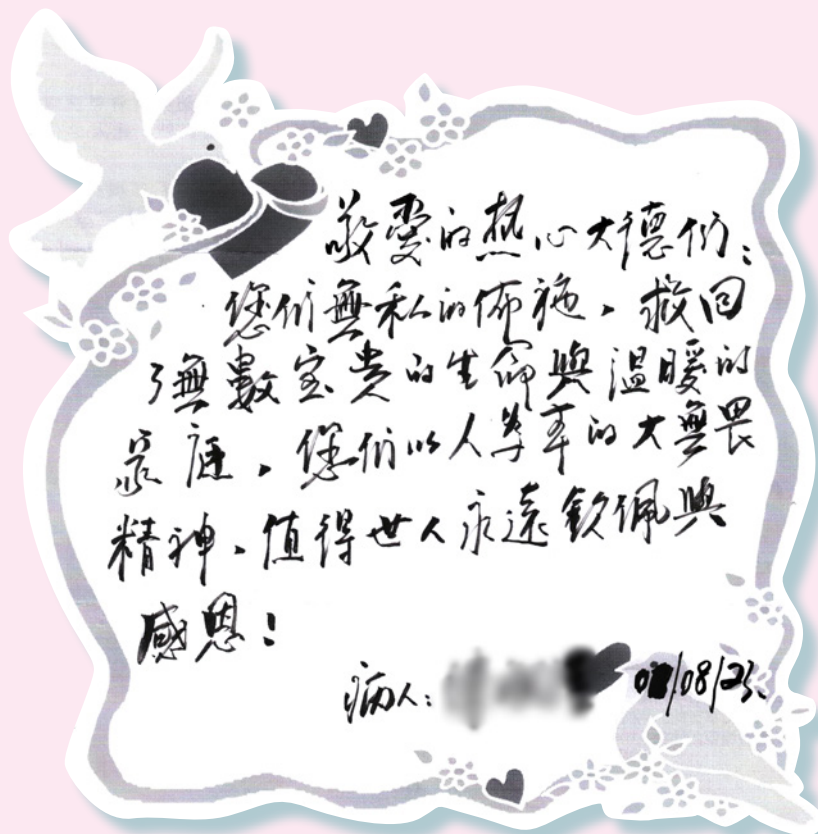 敬愛的热心大德们：
您们無私的佈施，救回
了無數宝贵的生命與温暖的
家庭，您们以人为本的大無畏
精神，值得世人永遠钦佩與
感恩！
病人： /08/23